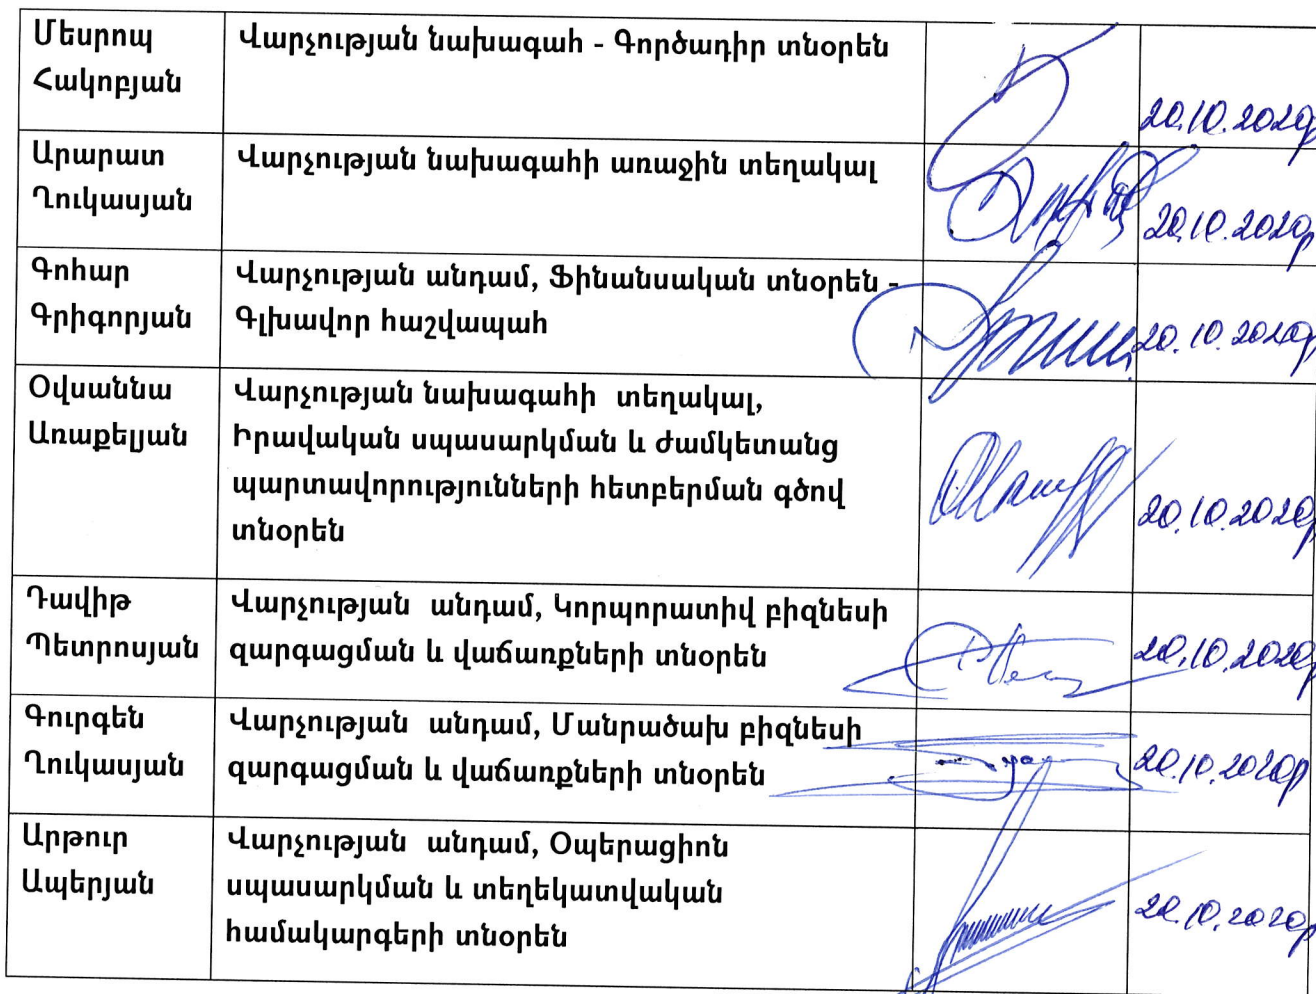 Մեսրոպ
Հակոբյան
Վարչության նախագահ - Գործադիր տնօրեն
20.10.2020թ
Արարատ
Ղուկասյան
Վարչության նախագահի առաջին տեղակալ
20.10.2020թ
Գոհար
Գրիգորյան
Վարչության անդամ, Ֆինանսական տնօրեն -
Գլխավոր հաշվապահ
20.10.2020թ
Օվսաննա
Առաքելյան
Վարչության նախագահի տեղակալ,
Իրավական սպասարկման և ժամկետանց
պարտավորությունների հետբերման գծով
տնօրեն
20.10.2020թ
Դավիթ
Պետրոսյան
Վարչության անդամ, Կորպորատիվ բիզնեսի
զարգացման և վաճառքների տնօրեն
20.10.2020թ
Գուրգեն
Ղուկասյան
Վարչության անդամ, Մանրածախ բիզնեսի
զարգացման և վաճառքների տնօրեն
20.10.2020թ
Արթուր
Ապերյան
Վարչության անդամ, Օպերացիոն
սպասարկման և տեղեկատվական
համակարգերի տնօրեն
20.10.2020թ